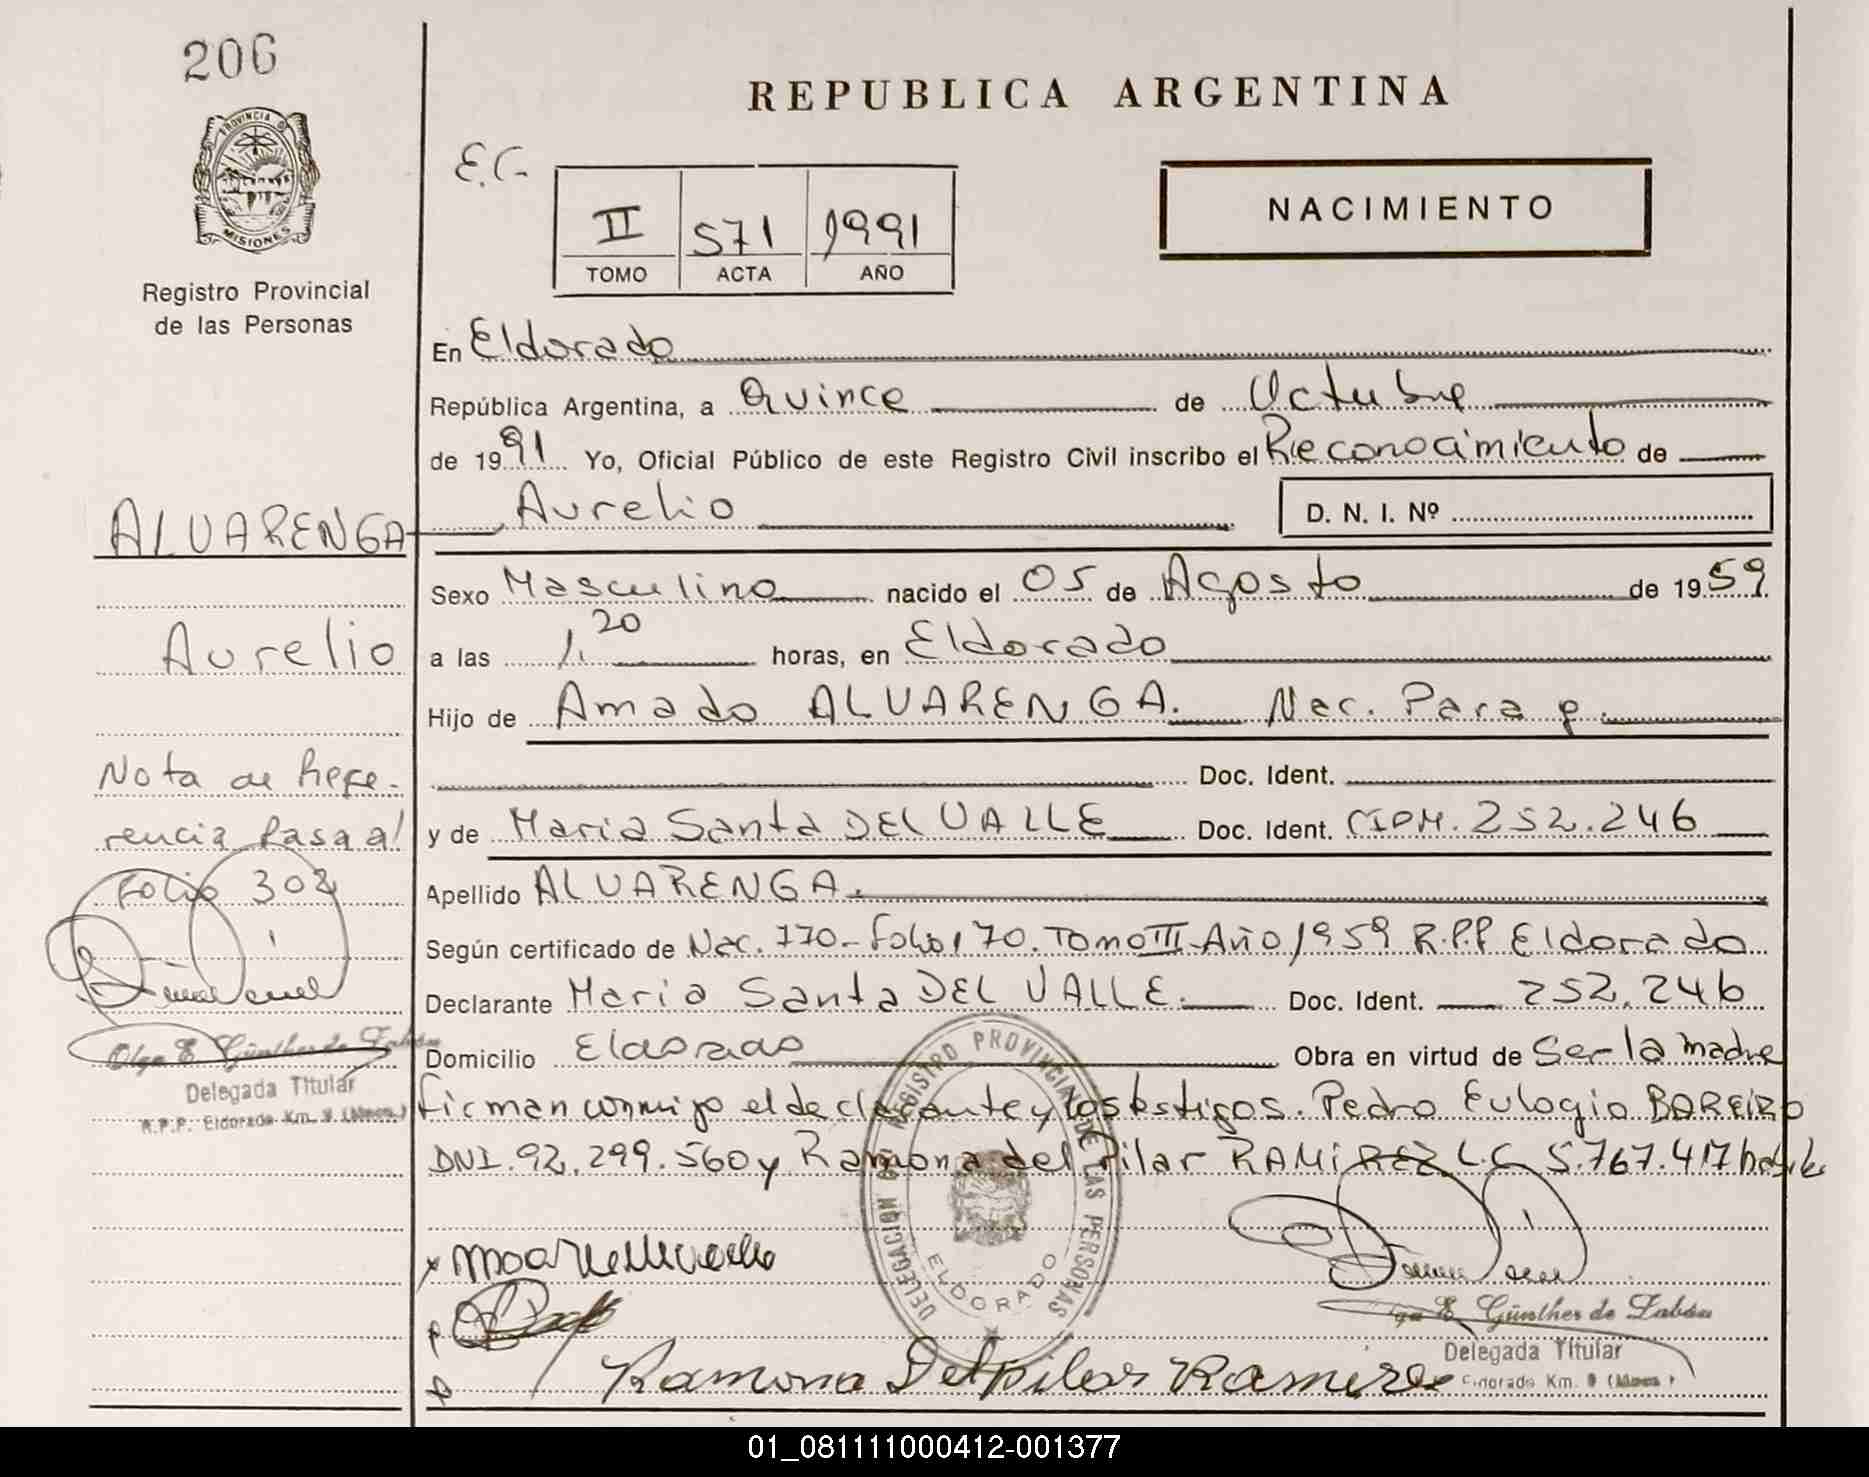 206
REPUBLICA ARGENTINA
PROVINCIA D
MISIONES
Registro Provincial
de las Personas
E.C.
II 571 1991
TOMO ACTA AÑO
NACIMIENTO
En Eldorado
República Argentina, a Quince de Octubre
de 1991 Yo, Oficial Público de este Registro Civil inscribo el Reconocimiento de
ALVARENGA Aurelio
D. N. I. Nº
Sexo Masculino nacido el 05 de Agosto de 1959
Aurelio
a las 1.20 horas, en Eldorado
Hijo de Amado ALVARENGA. Nac. Parag.
Nota de Refe-
Doc. Ident.
rencia Pasa al
y de Maria Santa DEL VALLE Doc. Ident. CIPM. 252.246
Folio 302
Apellido ALVARENGA.
Según certificado de Nac. 770-Folio 170. Tomo III-Año 1959 R.P.P Eldorado
Declarante Maria Santa DEL VALLE. Doc. Ident. 252.246
Olga E. Günther de Zabán
Delegada Titular
R.P.P. Eldorado Km. 9 (Mnes.)
Domicilio Eldorado Obra en virtud de Ser la madre
firman conmigo el declarante y los testigos. Pedro Eulogio BAREIRO
DNI. 92.299.560 y Ramona del Pilar RAMIREZ L.C 5.767.417
DELEGACION DEL REGISTRO PROVINCIAL DE LAS PERSONAS
ELDORADO
Olga E. Günther de Zabán
Delegada Titular
Eldorado Km. 9 (Mnes.)
Ramona Delpilar Ramirez
01_081111000412-001377